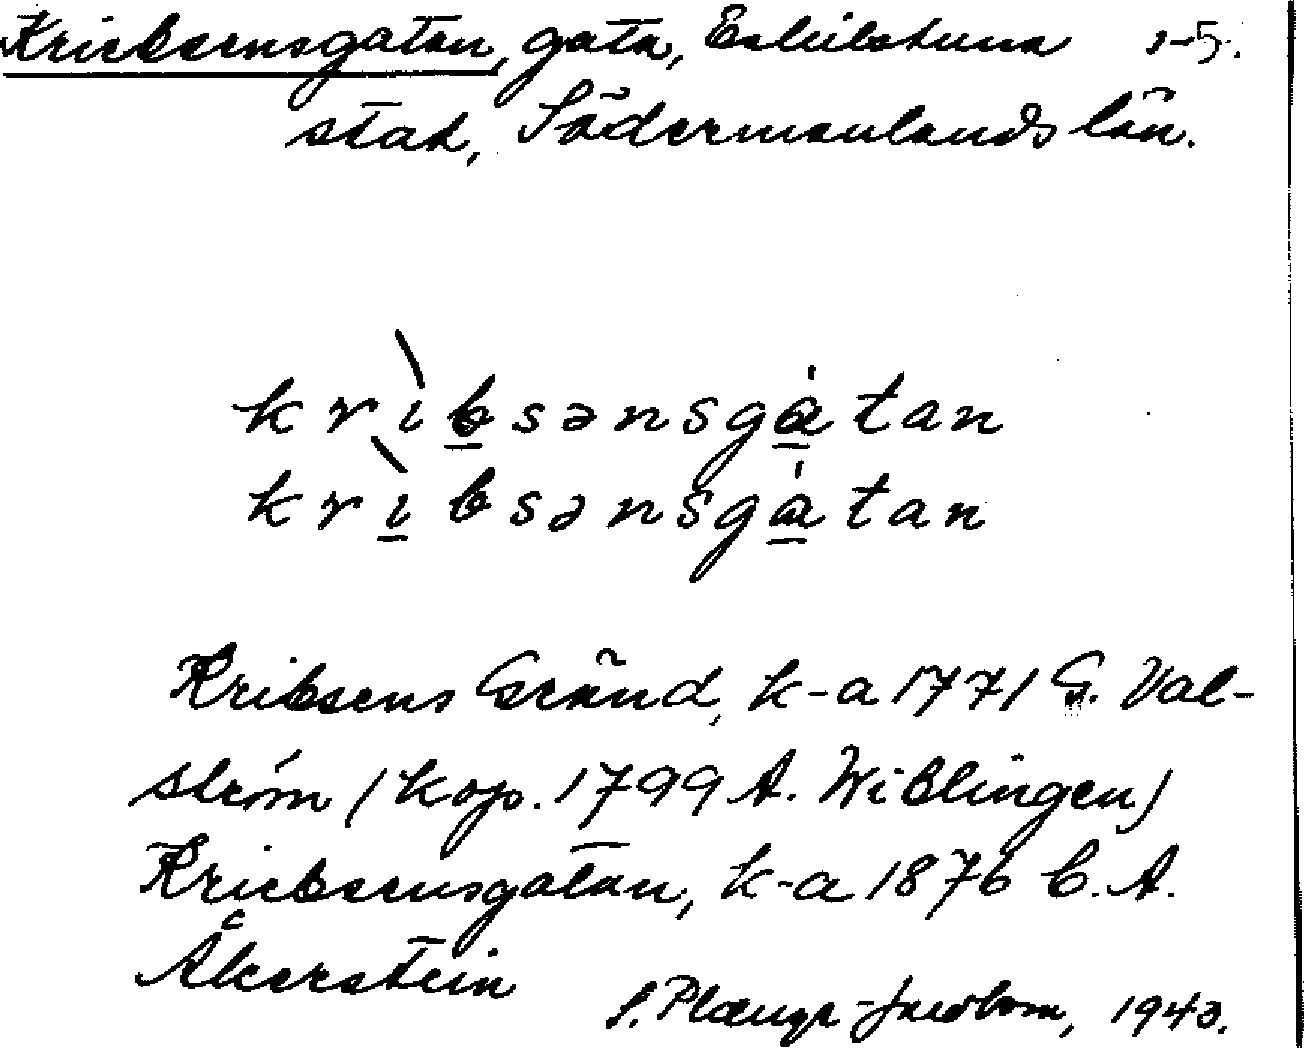 Kriebsensgatan, gata, Eskilstuna 1-5.
stad, Södermanlands län.
krìbsənsgátan
krìbsənsgátan
Kribsens Gränd, k-a 1771 G. Val-
ström (kop. 1799 A. Wiblingen)
Kriebsensgatan, k-a 1876 C. A.
Åkerstein
1943.